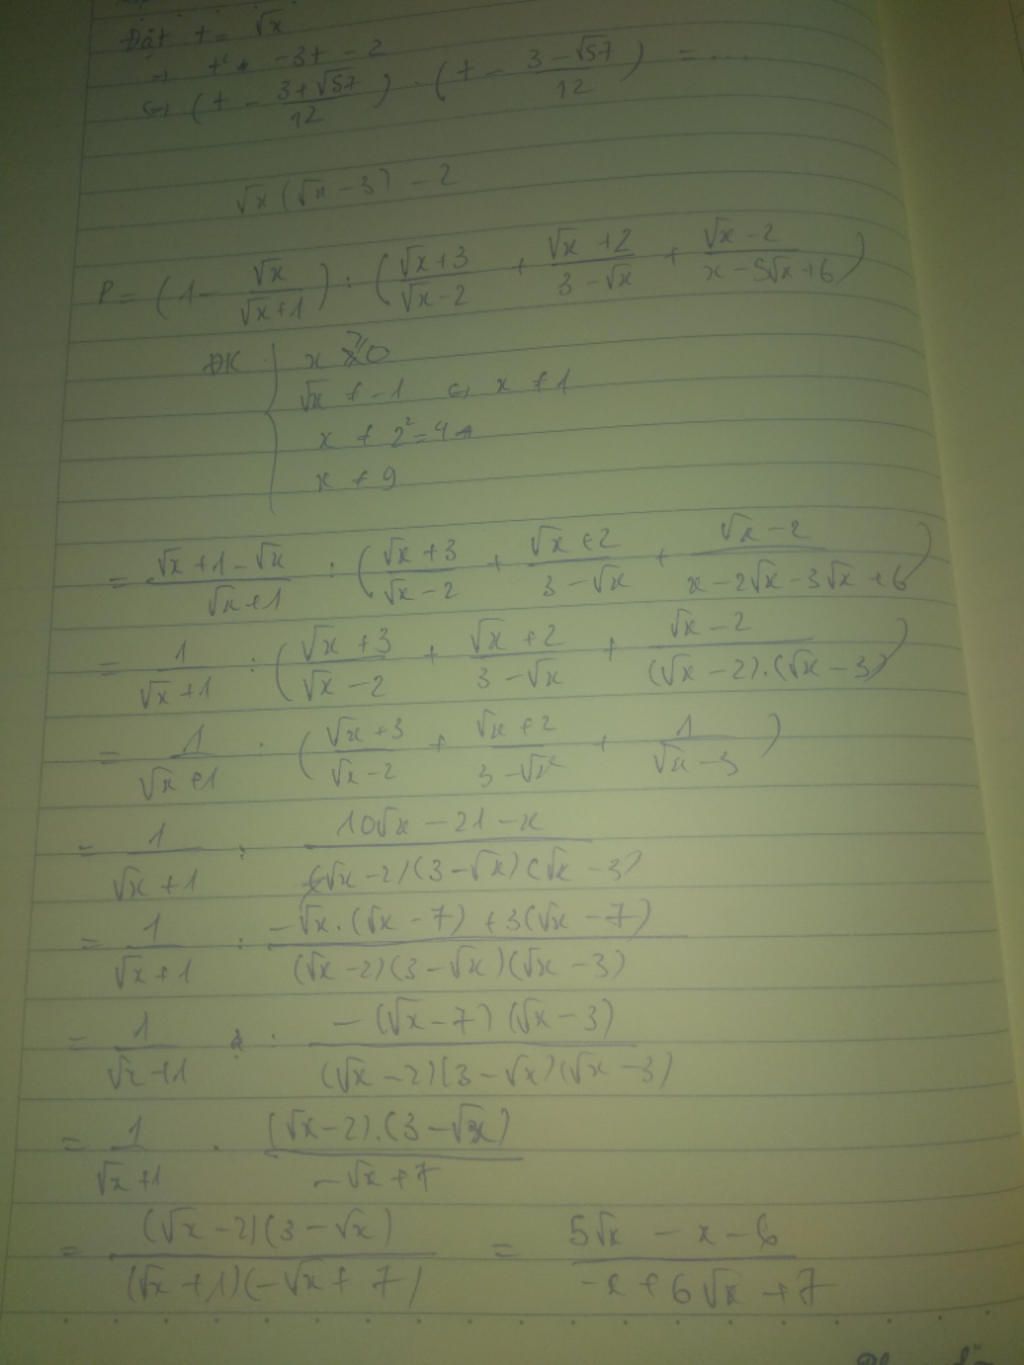 Đặt t = √x
→ t² + -3t - 2
⇔ (t - (3+√57)/12) . (t - (3-√57)/12) = ...
√x (√x - 3) - 2
P = (1 - √x/(√x+1)) : ((√x+3)/(√x-2) + (√x+2)/(3-√x) + (√x-2)/(x-5√x+6))
ĐK { x ≥ 0
√x ≠ -1 ⇔ x ≠ 1
x ≠ 2² = 4
x ≠ 9
= (√x+1-√x)/(√x+1) : ((√x+3)/(√x-2) + (√x+2)/(3-√x) + (√x-2)/(x-2√x-3√x+6))
= 1/(√x+1) : ((√x+3)/(√x-2) + (√x+2)/(3-√x) + (√x-2)/((√x-2).(√x-3)))
= 1/(√x+1) : ((√x+3)/(√x-2) + (√x+2)/(3-√x) + 1/(√x-3))
= 1/(√x+1) : (10√x-21-x)/((√x-2)(3-√x)(√x-3))
= 1/(√x+1) : (-√x.(√x-7)+3(√x-7))/((√x-2)(3-√x)(√x-3))
= 1/(√x+1) : (-(√x-7)(√x-3))/((√x-2)(3-√x)(√x-3))
= 1/(√x+1) . ((√x-2).(3-√x))/(-√x+7)
= ((√x-2)(3-√x))/((√x+1)(-√x+7)) = (5√x-x-6)/(-x+6√x+7)